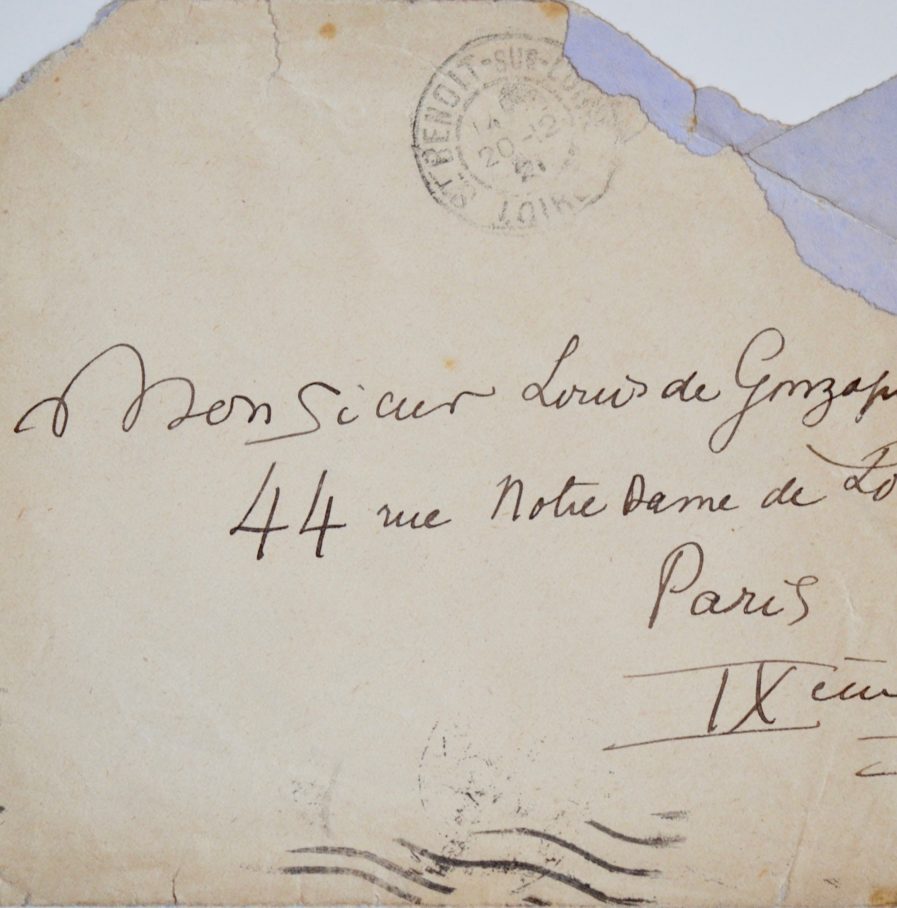 ST BENOIT-SUR-LOIRE
20-12
21
LOIRE
Monsieur Louis de Gonzag
44 rue Notre Dame de Lo
Paris
IXème